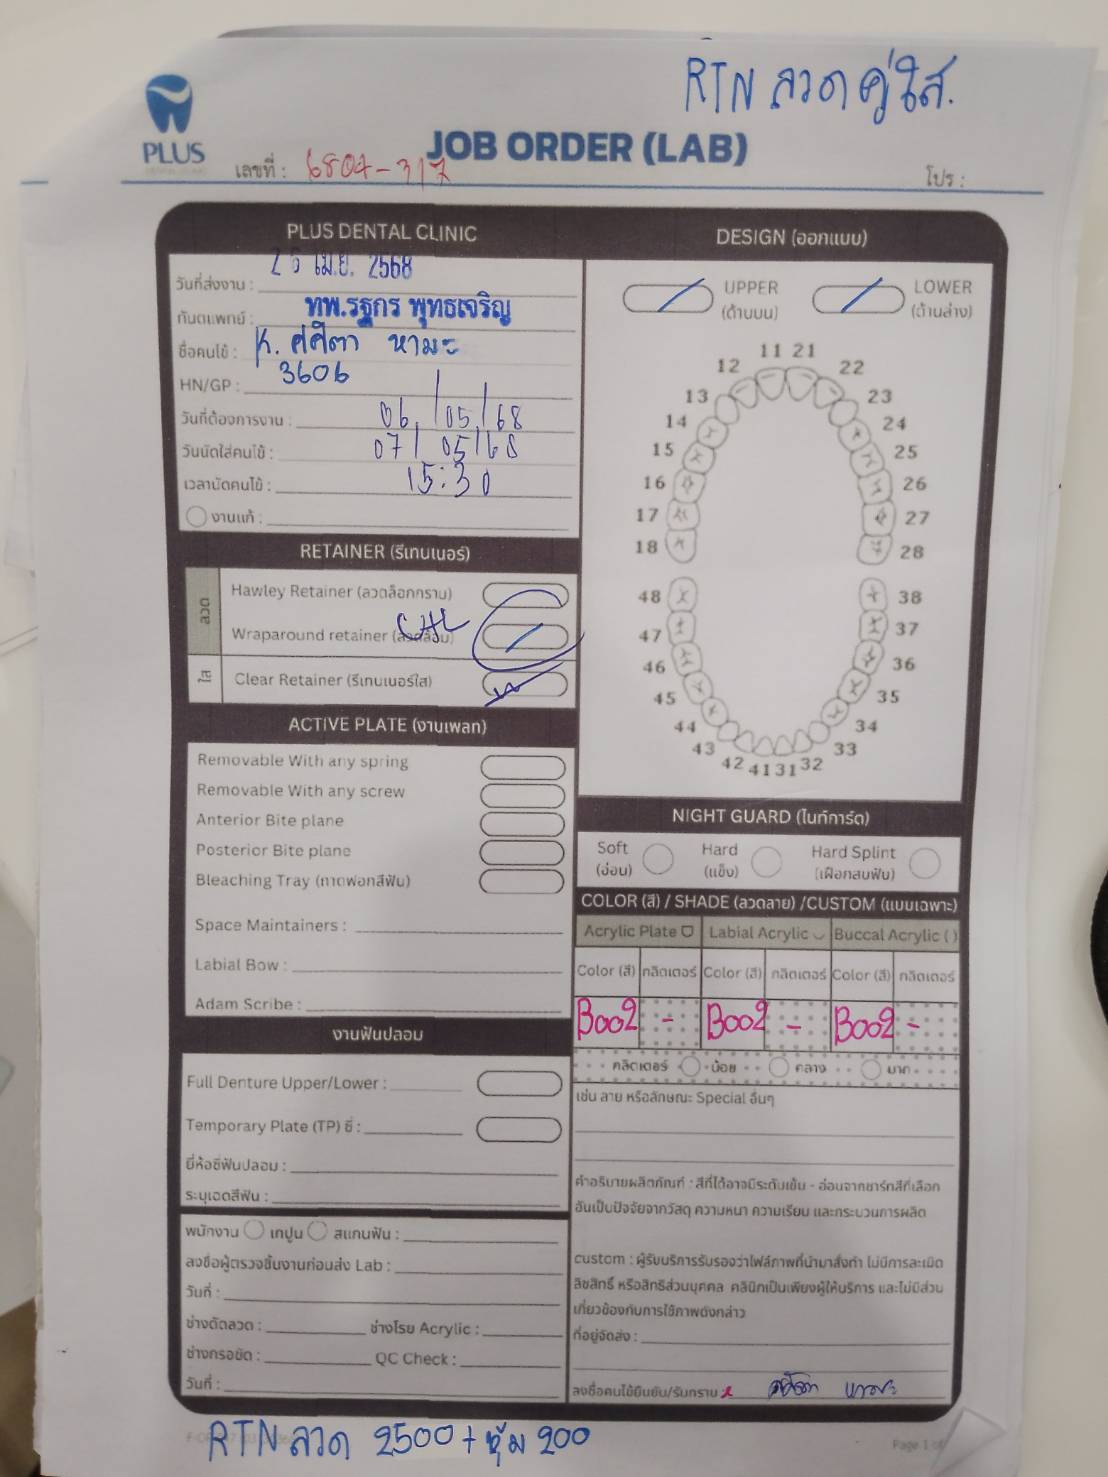 RTN ลวด คู่ ใส.
PLUS
JOB ORDER (LAB)
เลขที่ : 6804-317
โปร :
PLUS DENTAL CLINIC
วันที่ส่งงาน : 26 เม.ย. 2568
ทันตแพทย์ : ทพ.รฐกร พุทธเจริญ
ชื่อคนไข้ : K. ศศิตา หามะ
HN/GP : 3606
วันที่ต้องการงาน : 06/05/68
วันนัดใส่คนไข้ : 07/05/68
เวลานัดคนไข้ : 15:30
งานแก้ :
RETAINER (รีเทนเนอร์)
ลวด
Hawley Retainer (ลวดล็อกกราม)
Wraparound retainer (ลวดล้อม) CHL
ใส
Clear Retainer (รีเทนเนอร์ใส)
ACTIVE PLATE (งานเพลท)
Removable With any spring
Removable With any screw
Anterior Bite plane
Posterior Bite plane
Bleaching Tray (ถาดฟอกสีฟัน)
Space Maintainers :
Labial Bow :
Adam Scribe :
งานฟันปลอม
Full Denture Upper/Lower :
Temporary Plate (TP) ซี่ :
ยี่ห้อซี่ฟันปลอม :
ระบุเฉดสีฟัน :
พนักงาน เทปูน สแกนฟัน :
ลงชื่อผู้ตรวจชิ้นงานก่อนส่ง Lab :
วันที่ :
ช่างดัดลวด : ช่างโรย Acrylic :
ช่างกรอขัด : QC Check :
วันที่ :
DESIGN (ออกแบบ)
UPPER
(ด้านบน)
LOWER
(ด้านล่าง)
11 21
12 22
13 23
14 24
15 25
16 26
17 27
18 28
48 38
47 37
46 36
45 35
44 34
43 33
42 41 31 32
NIGHT GUARD (ไนท์การ์ด)
Soft
(อ่อน)
Hard
(แข็ง)
Hard Splint
(เฝือกสบฟัน)
COLOR (สี) / SHADE (ลวดลาย) /CUSTOM (แบบเฉพาะ)
Acrylic Plate Labial Acrylic Buccal Acrylic ( )
Color (สี) กลิตเตอร์ Color (สี) กลิตเตอร์ Color (สี) กลิตเตอร์
B002 - B002 - B002 -
กลิตเตอร์ น้อย กลาง มาก
เช่น ลาย หรือลักษณะ Special อื่นๆ
คำอธิบายผลิตภัณฑ์ : สีที่ได้อาจมีระดับเข้ม - อ่อนจากชาร์ทสีที่เลือก
อันเป็นปัจจัยจากวัสดุ ความหนา ความเรียบ และกระบวนการผลิต
custom : ผู้รับบริการรับรองว่าไฟล์ภาพที่นำมาสั่งทำ ไม่มีการละเมิด
ลิขสิทธิ์ หรือสิทธิส่วนบุคคล คลินิกเป็นเพียงผู้ให้บริการ และไม่มีส่วน
เกี่ยวข้องกับการใช้ภาพดังกล่าว
ที่อยู่จัดส่ง :
ลงชื่อคนไข้ยืนยัน/รับทราบ x ศศิตา หามะ
RTN ลวด 2500 + หุ้ม 200
Page 1 of